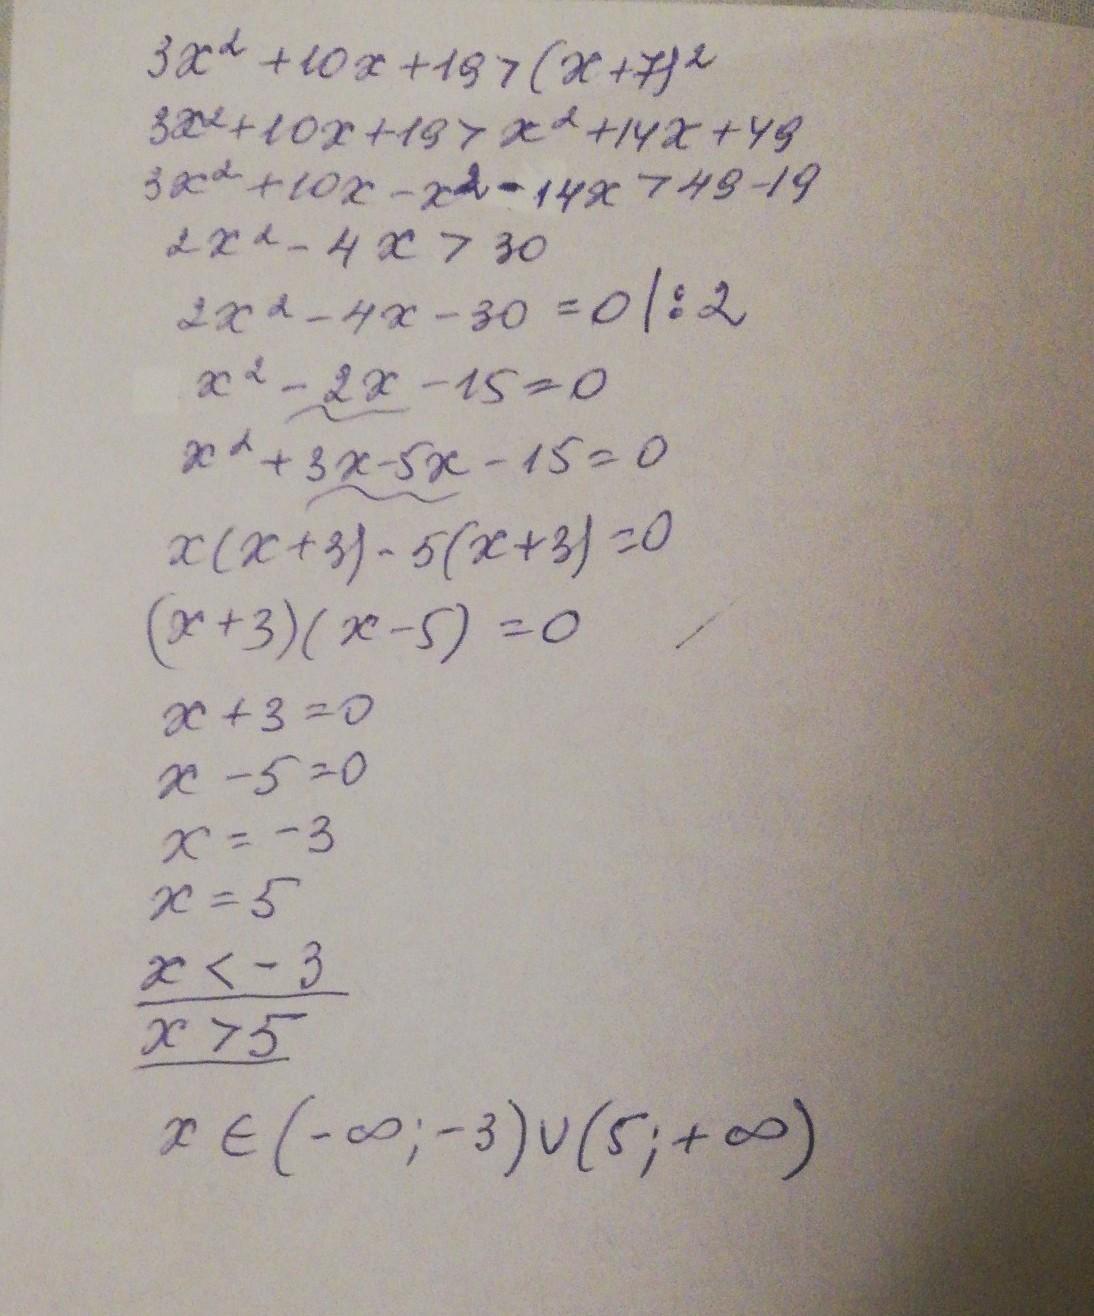 3x² + 10x + 19 > (x + 7)²
3x² + 10x + 19 > x² + 14x + 49
3x² + 10x - x² - 14x > 49 - 19
2x² - 4x > 30
2x² - 4x - 30 = 0 |: 2
x² - 2x - 15 = 0
x² + 3x - 5x - 15 = 0
x(x + 3) - 5(x + 3) = 0
(x + 3)(x - 5) = 0
x + 3 = 0
x - 5 = 0
x = -3
x = 5
x < -3
x > 5
x ∈ (-∞; -3) ∪ (5; +∞)